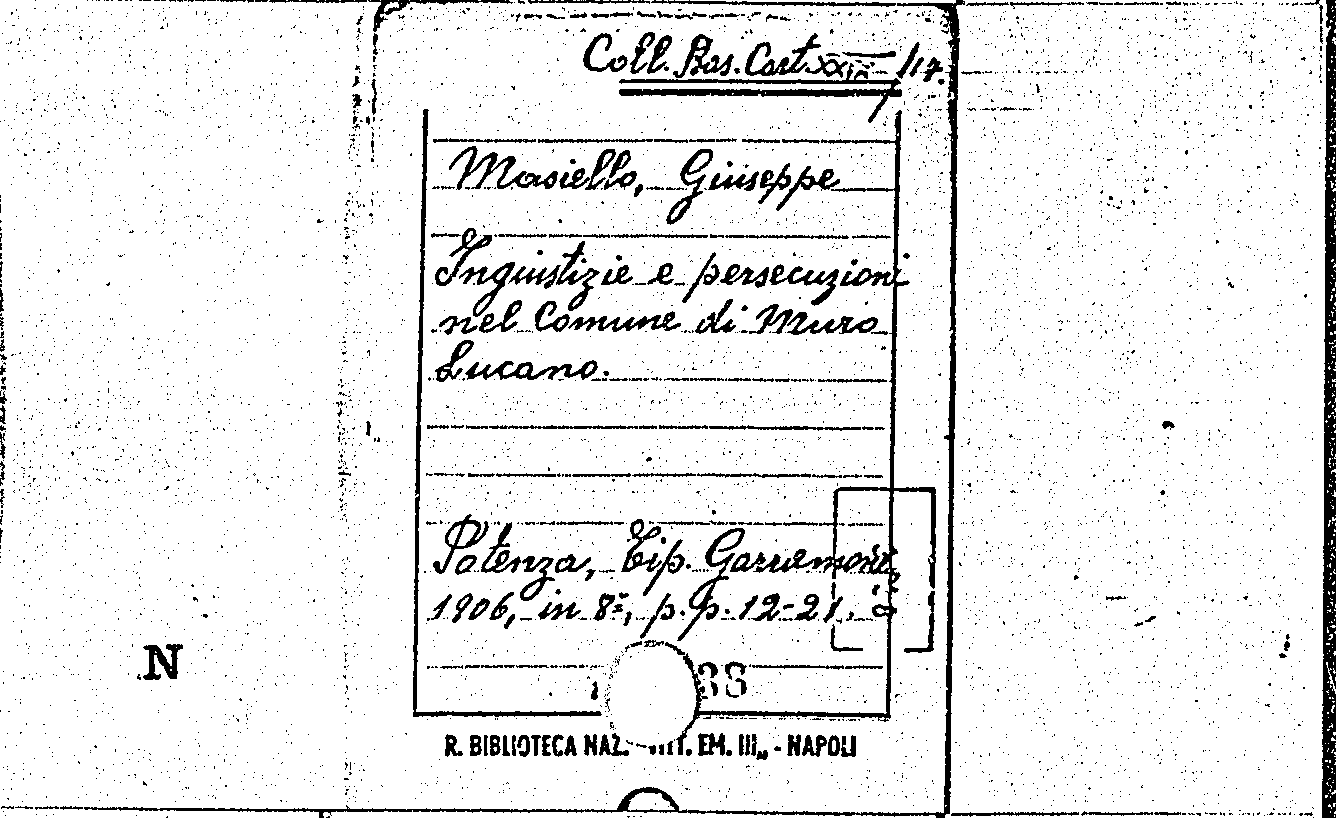 Coll. Bas. Cart. XXIV /17.
Masiello, Giuseppe
Ingiustizie e persecuzioni
nel Comune di Muro
Lucano.
Potenza, Tip. Garramone,
1906, in 8º, p.p. 12-21.
N
R. BIBLIOTECA NAZ. EM. III„ - NAPOLI